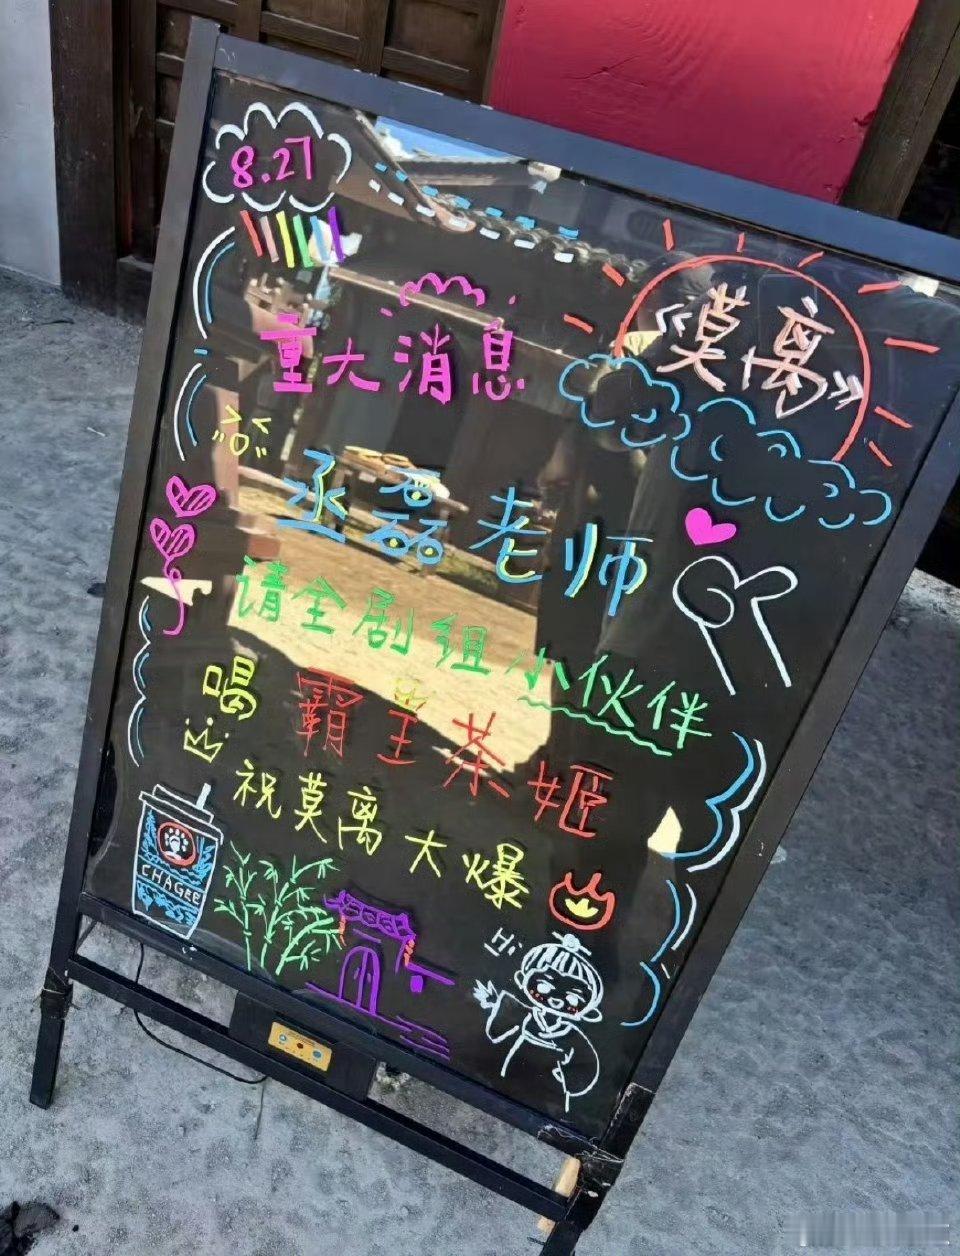 8.27
《莫离》
重大消息
丞磊老师
请全剧组小伙伴
喝霸王茶姬
祝莫离大爆
CHAGEE
Hi